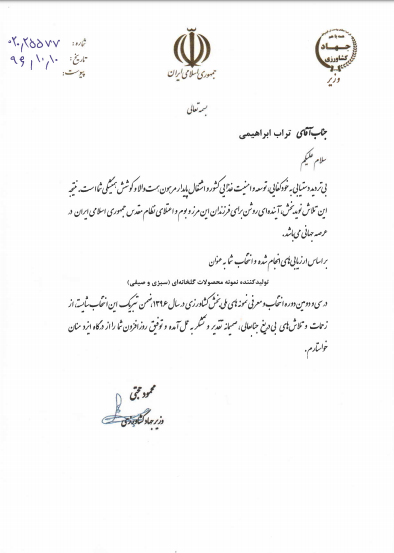 همه با هم
جهاد
کشاورزی
وزیر
جمهوری اسلامی ایران
شماره: ۰۲۰/۲۵۵۷۷
تاریخ: ۹۶/۱۰/۱۰
پیوست:
بسمه تعالی
جناب آقای تراب ابراهیمی
سلام علیکم
بی تردید دستیابی به خودکفایی، توسعه و امنیت غذایی کشور و اشتغال پایدار مرهون همت والا و کوشش همیشگی شما است. نتیجه
این تلاش نوید بخش، آینده‌ای روشن برای فرزندان این مرز و بوم و اعتلای نظام مقدس جمهوری اسلامی ایران در
عرصه جهانی می‌باشد.
بر اساس ارزیابی‌های انجام شده و انتخاب شما به عنوان
تولیدکننده نمونه محصولات گلخانه‌ای (سبزی و صیفی)
در سی و دومین دوره انتخاب و معرفی نمونه های ملی بخش کشاورزی در سال ۱۳۹۶، ضمن تبریک این انتخاب شایسته، از
زحمات و تلاش‌های بی دریغ جنابعالی، صمیمانه تقدیر و تشکر به عمل آمده و توفیق روزافزون شما را از درگاه ایزد منان
خواستارم.
محمود حجتی
وزیر جهاد کشاورزی